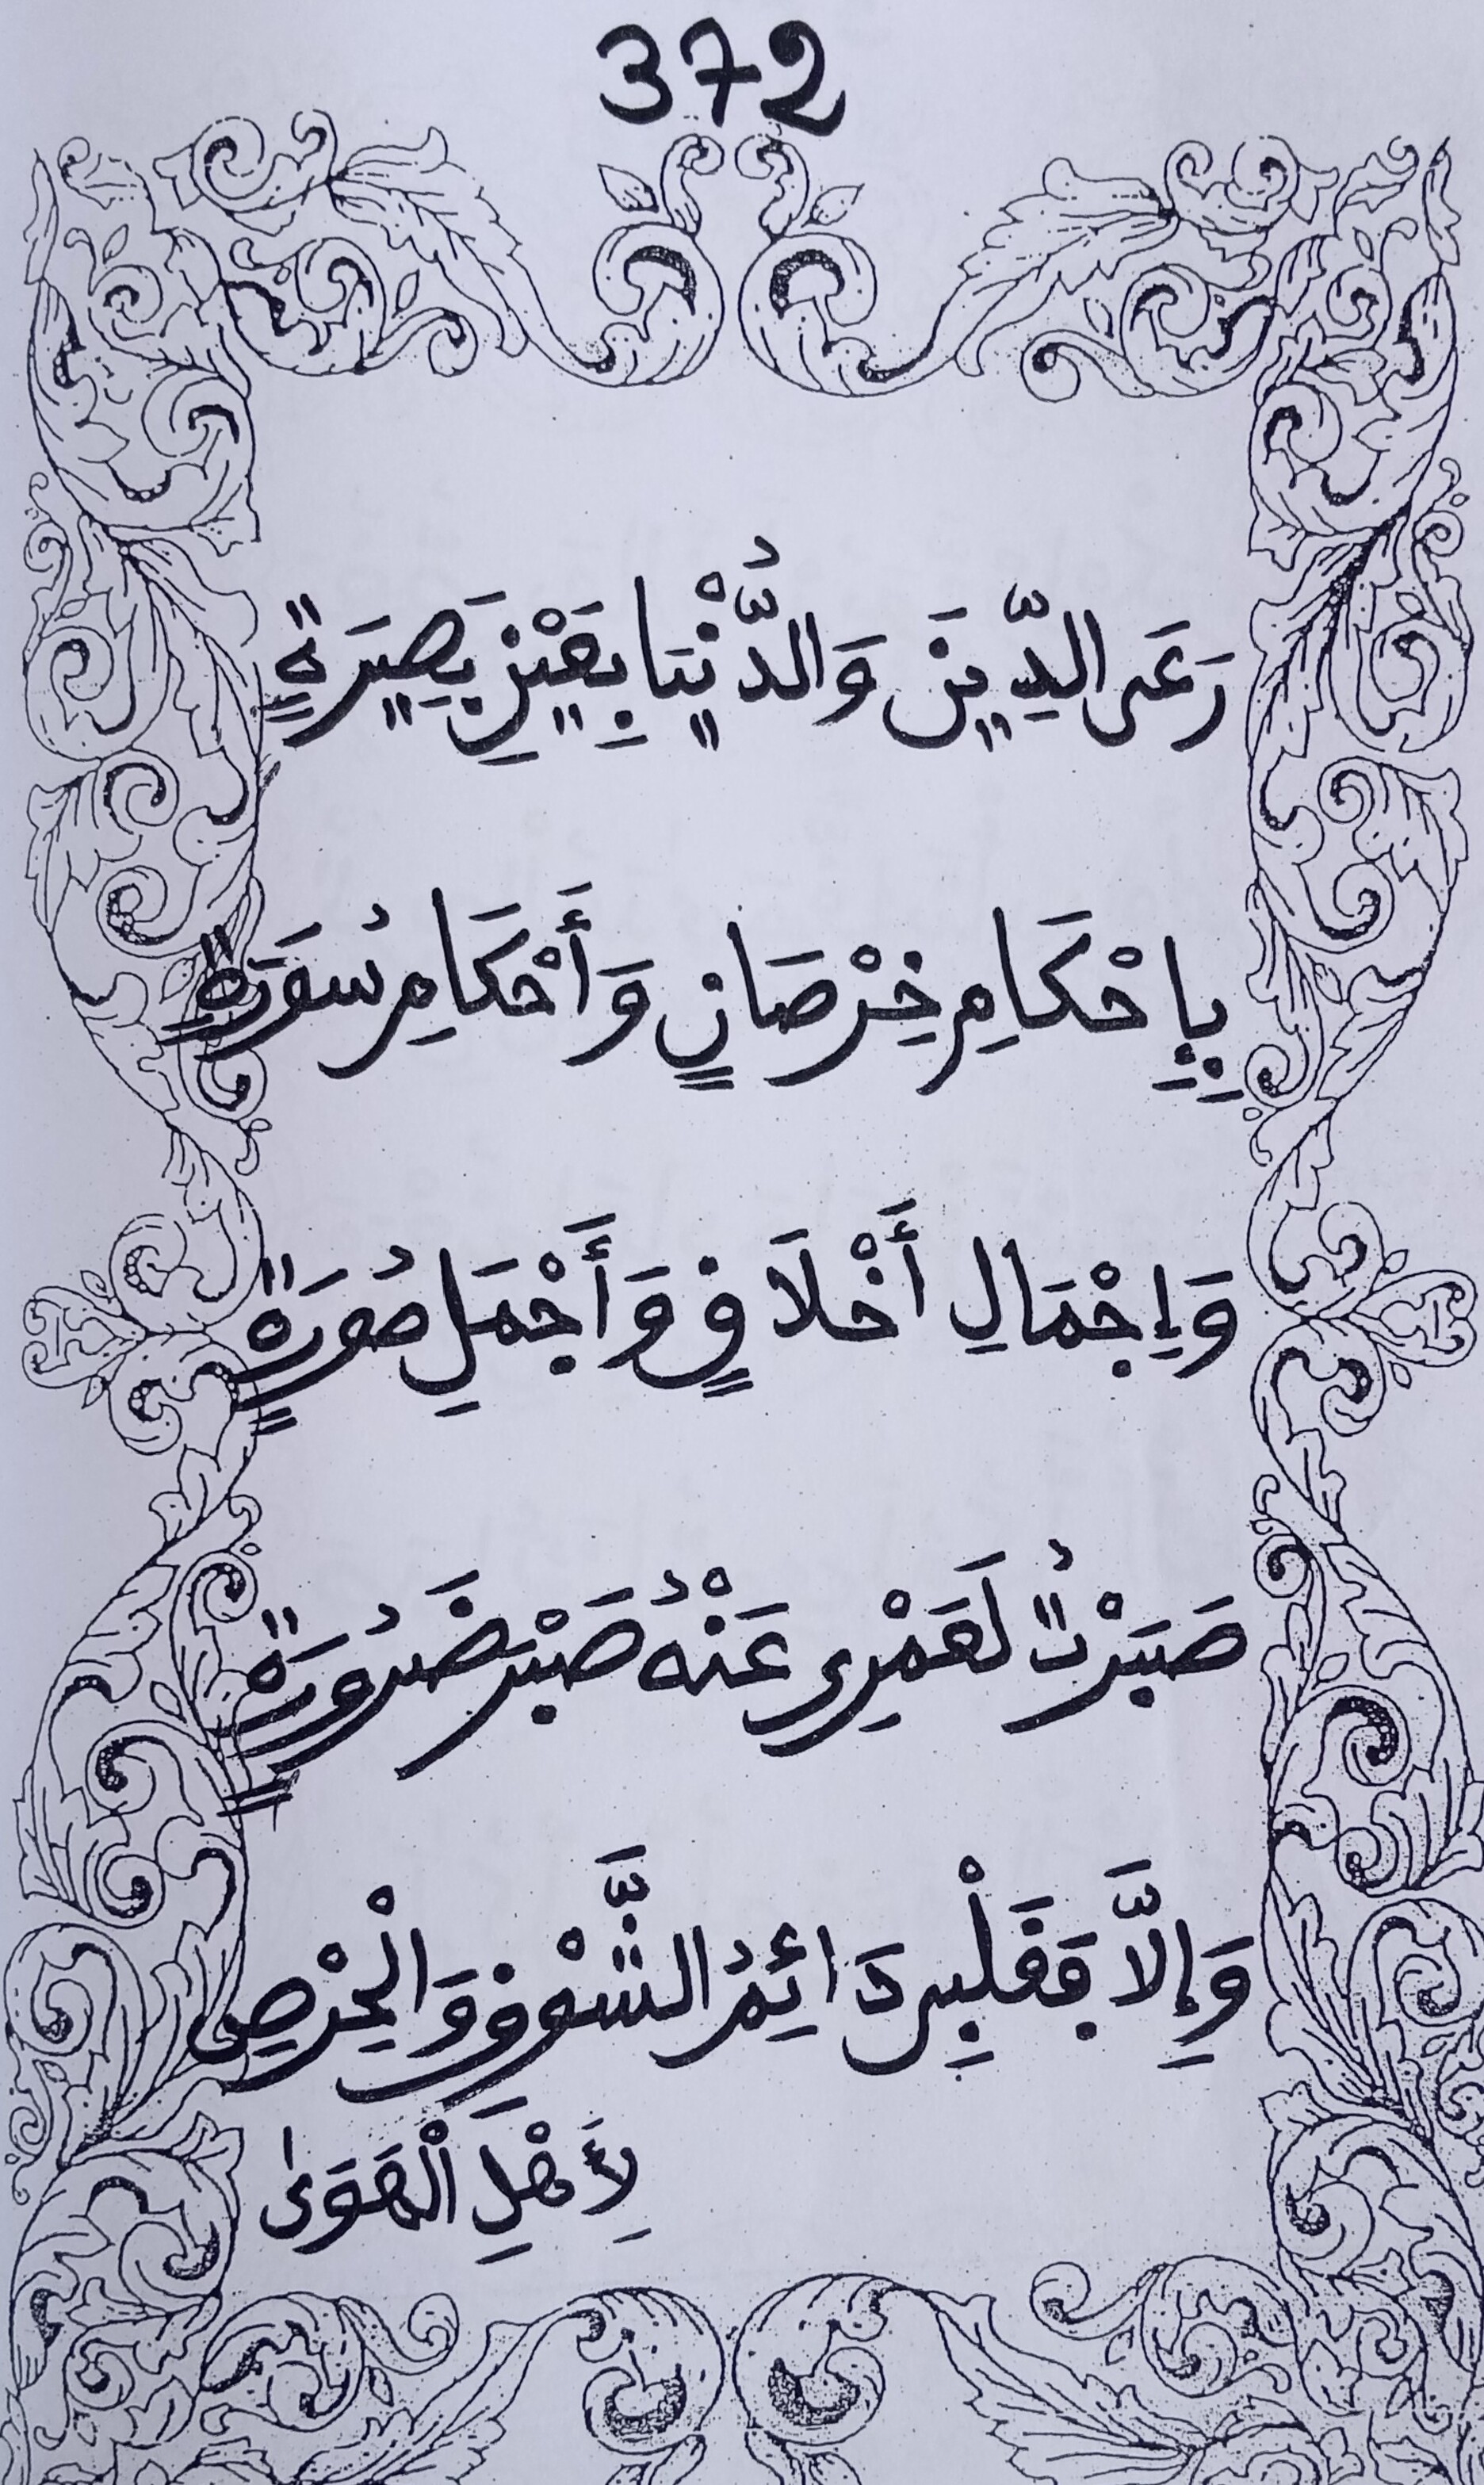 372
رَعَى الدِّينَ وَالدُّنْيَا بِعَيْنِ بَصِيرَةٍ
بِإِحْكَامِ خِرْصَانٍ وَأَحْكَامِ سُورَةٍ
وَإِجْمَالِ أَخْلَاقٍ وَأَجْمَلِ صُورَةٍ
صَبَرْتُ لَعَمْرِي عَنْهُ صَبْرَ ضَرُورَةٍ
وَإِلَّا فَقَلْبِي دَائِمُ الشَّوْقِ وَالْحِرْصِ
لِأَهْلِ الْهَوَى